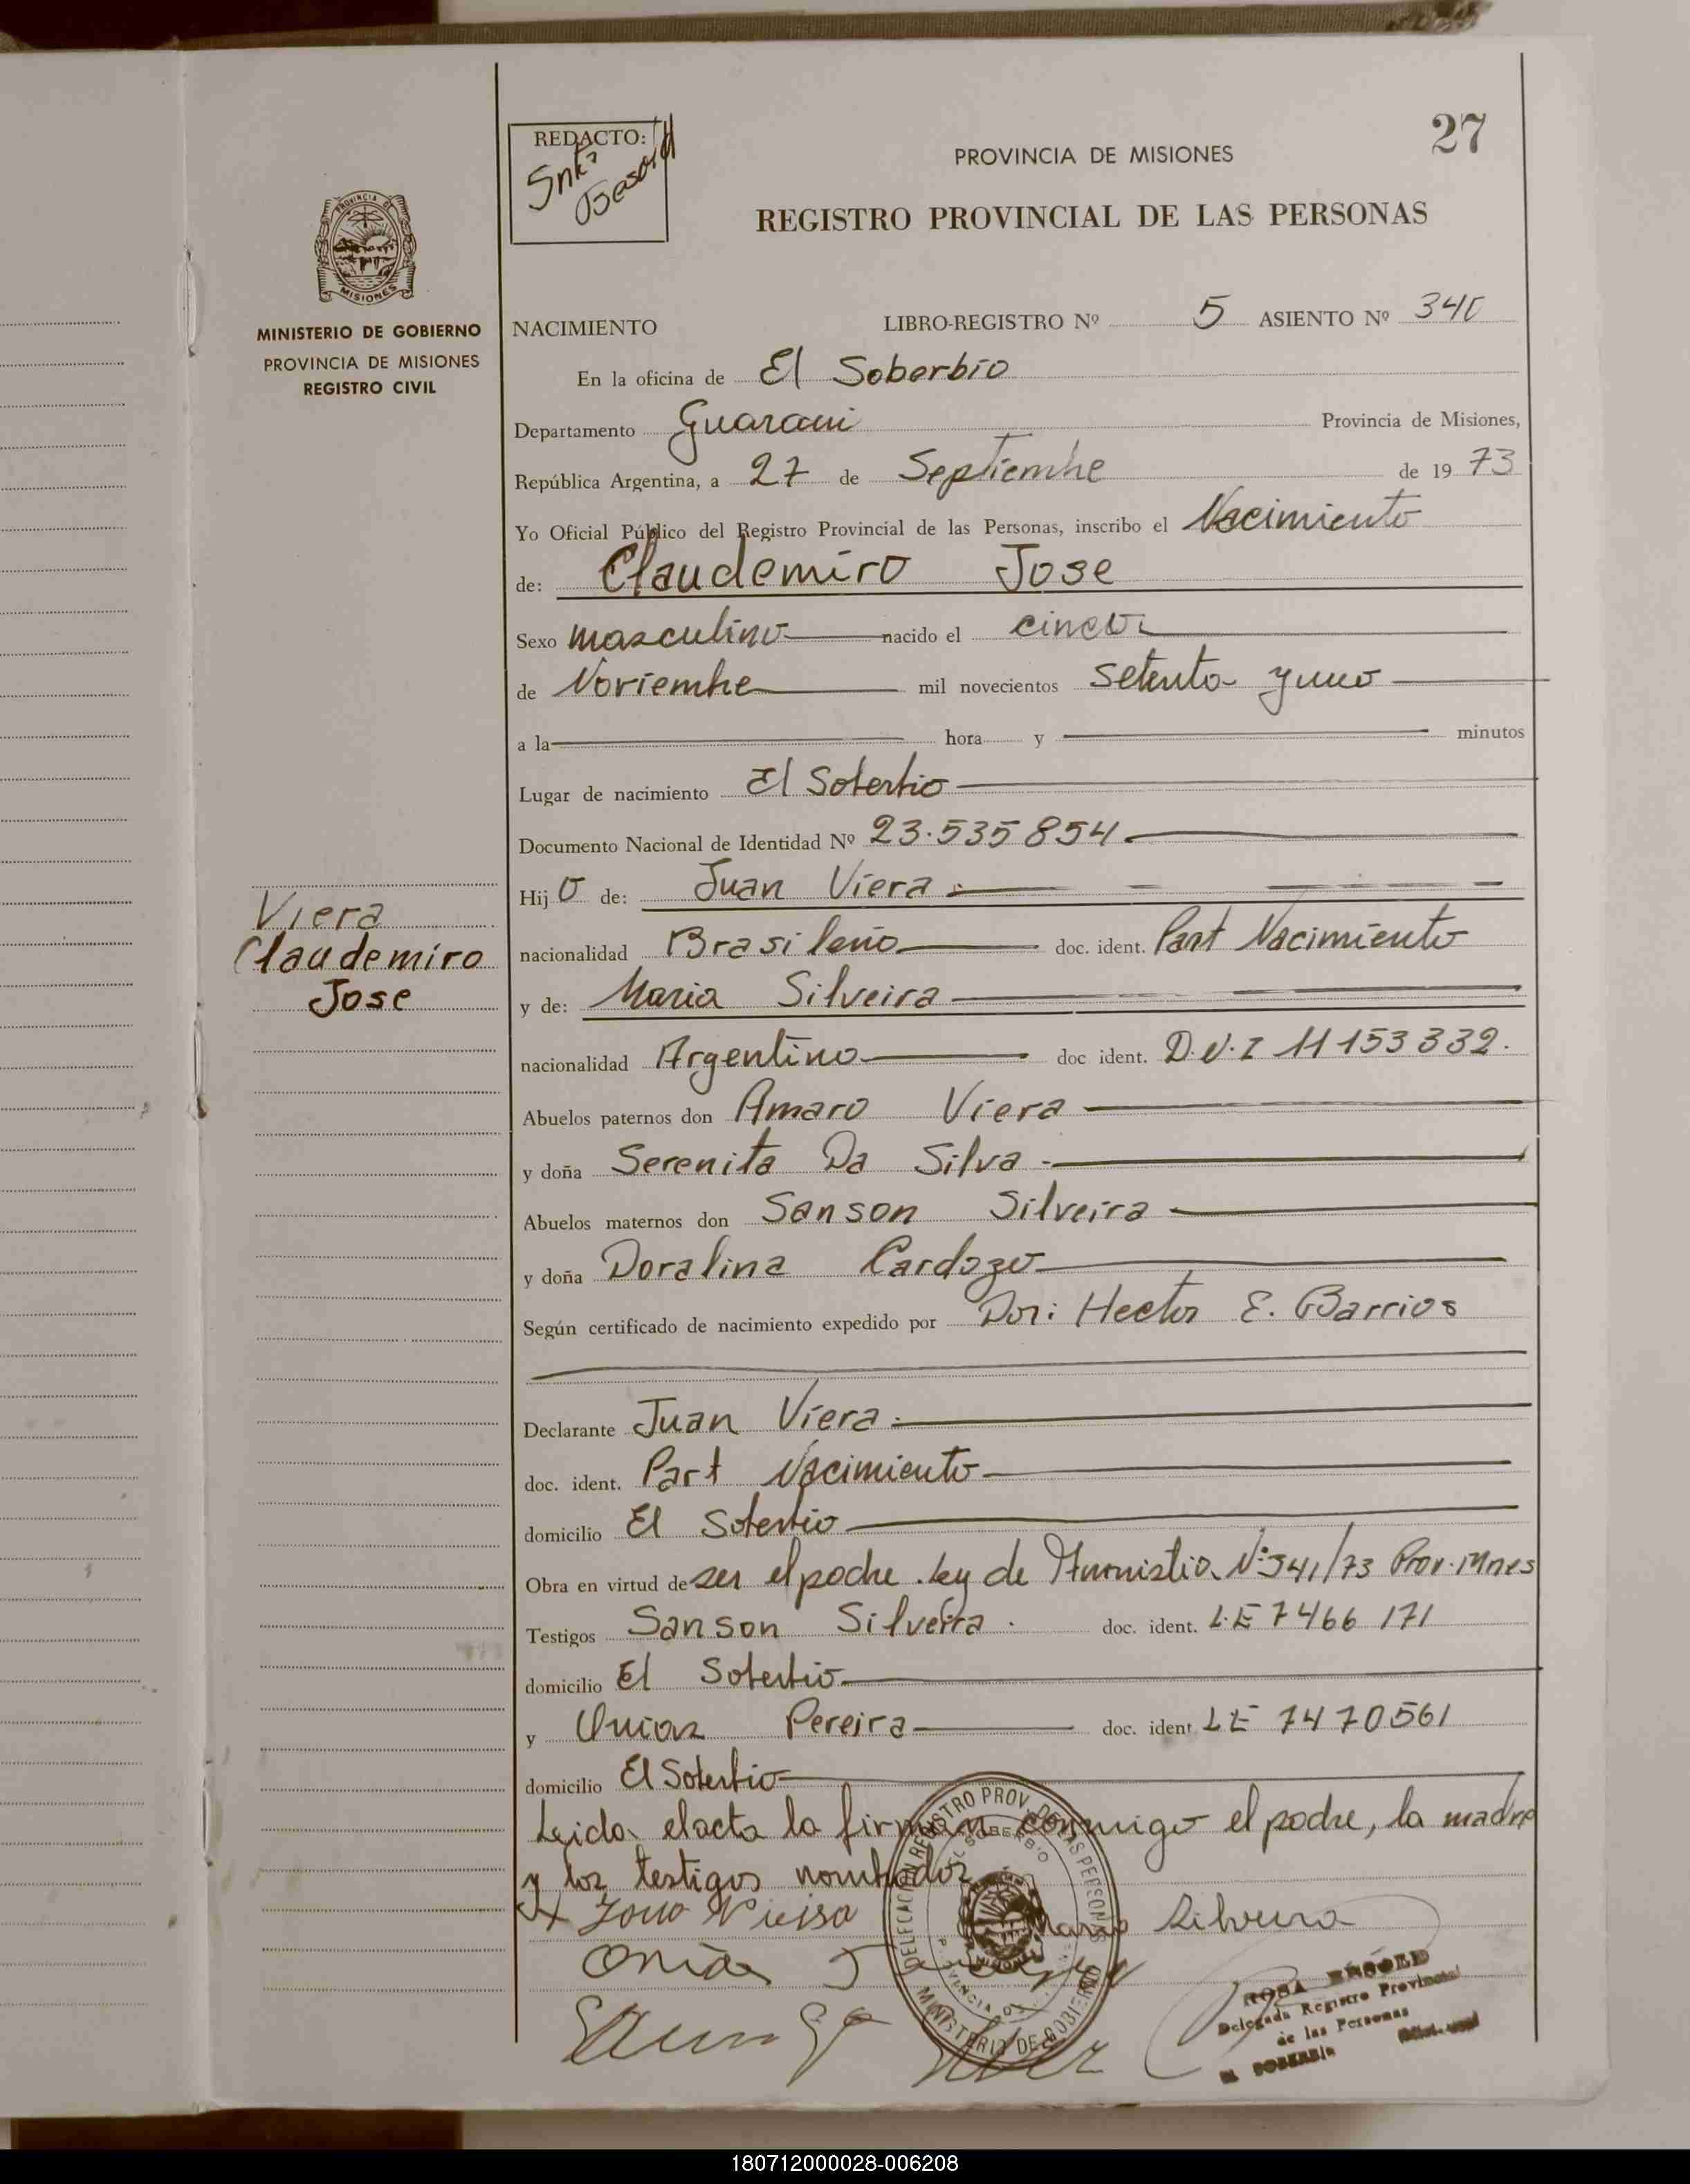 27
REDACTO:
PROVINCIA DE MISIONES
REGISTRO PROVINCIAL DE LAS PERSONAS
PROVINCIA DE
MISIONES
MINISTERIO DE GOBIERNO
PROVINCIA DE MISIONES
REGISTRO CIVIL
NACIMIENTO LIBRO-REGISTRO Nº 5 ASIENTO Nº 340
En la oficina de El Soberbio
Departamento Guarani Provincia de Misiones,
República Argentina, a 27 de Septiembre de 19 73
Yo Oficial Público del Registro Provincial de las Personas, inscribo el Nacimiento
de: Claudemiro Jose
Sexo masculino nacido el cinco
de Noviembre mil novecientos setenta y uno
a la hora y minutos
Lugar de nacimiento El Soberbio
Documento Nacional de Identidad Nº 23.535854.
Hij o de: Juan Viera
nacionalidad Brasileño doc. ident. Part Nacimiento
y de: Maria Silveira
nacionalidad Argentino doc ident. D.N.I 11153332.
Abuelos paternos don Amaro Viera
y doña Serenita Da Silva.
Abuelos maternos don Sanson Silveira
y doña Doralina Cardozo
Según certificado de nacimiento expedido por Dor: Hector E. Barrios
Viera
Claudemiro
Jose
Declarante Juan Viera.
doc. ident. Part Nacimiento
domicilio El Soberbio
Obra en virtud de ser el padre. Ley de Amnistia Nº 341/73 Prov. Mnes
Testigos Sanson Silveira. doc. ident. L.E 7466 171
domicilio El Soberbio
y Pereira doc. ident LE 7470561
domicilio El Soberbio
Leida el acta la firman conmigo el padre, la madre
y los testigos nombados
Maria Silveira
DELEGACION REGISTRO PROV. DE LAS PERSONAS
EL SOBERBIO
MINISTERIO DE GOBIERNO
ROSA
Delegada Registro Provincial
de las Personas
EL SOBERBIO
180712000028-006208